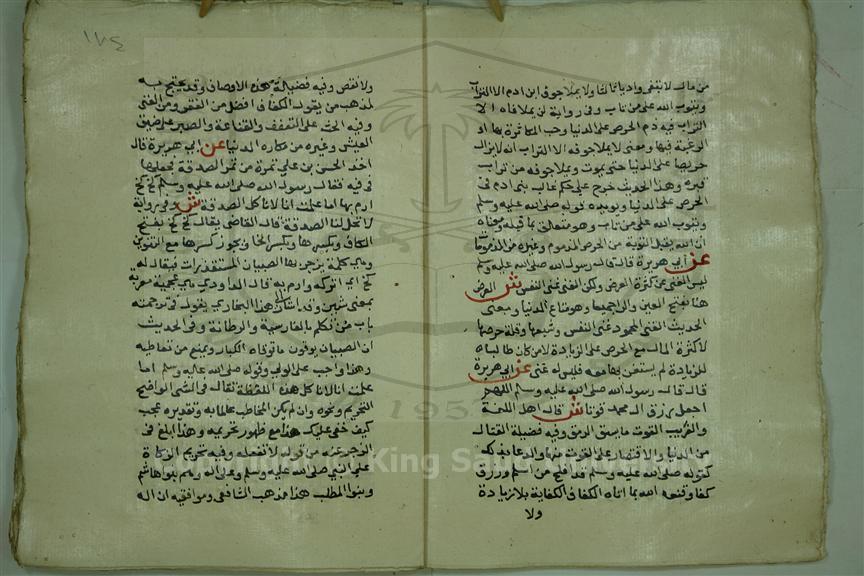 من مال لابتغى واديا ثالثا ولا يملا جوف ابن ادم الا التراب
ويتوب الله على من تاب وفي رواية لن يملا فاه الا
التراب فيه ذم الحرص على الدنيا وحب المكاثرة بها او
الرغبة فيها ومعنى لا يملا جوفه الا التراب انه لا يزال
حريصا على الدنيا حتى يموت ويملا جوفه من تراب
قبره وهذا الحديث خرج على حكم غالب بني ادم في
الحرص على الدنيا ويويده قوله صلى الله عليه وسلم
ويتوب الله على من تاب وهو متعلق بما قبله ومعناه
ان الله يقبل التوبة من الحرص المذموم وغيره من المذمومات
عن ابي هريرة قال قال رسول الله صلى الله عليه وسلم
ليس الغنى عن كثرة العرض ولكن الغنى غنى النفس ش العرض
هنا بفتح العين والرا جميعا وهو متاع الدنيا ومعنى
الحديث الغنى المحمود غنى النفس وشبعها وقلة حرصها
لا كثرة المال مع الحرص على الزيادة لان من كان طالبا
للزيادة لم يستغن بما معه فليس له غنى عن ابي هريرة
قال قال رسول الله صلى الله عليه وسلم اللهم
اجعل رزق ال محمد قوتا ش قال اهل اللغة
والغريب القوت ما يسق الرمق وفيه فضيلة التقلل
من الدنيا والاقتصار على القوت منها والدعا بذلك
كقوله صلى الله عليه وسلم قد افلح من اسلم ورزق
كفافا وقنعه الله بما اتاه الكفاف الكفاية بلا زيادة
ولا
١٧٤
ولا نقص وفيه فضيلة هذه الاوصاف وقد يحتج به
لمذهب من يقول الكفاف افضل من الفقر ومن الغنى
وفيه الحث على التعفف والقناعة والصبر على ضيق
العيش وغيره من مكاره الدنيا عن ابي هريرة قال
اخذ الحسن بن علي تمرة من تمر الصدقة فجعلها
في فيه فقال رسول الله صلى الله عليه وسلم كخ كخ
ارم بها اما علمت انا لا ناكل الصدقة ش وفي رواية
لا تحل لنا الصدقة قال القاضي يقال كخ كخ بفتح
الكاف وبكسرها وبكسر الخا ويجوز كسرها مع التنوين
وهي كلمة يزجر بها الصبيان المستقذرات فيقال له
كخ اي اتركه وارم به قال الداودي هي عجمية معربة
بمعنى شين وقد اشار لهذا البخاري بقوله في ترجمته
باب من تكلم بالفارسية والرطانة وفي الحديث
ان الصبيان يوقون ما توقاه الكبار ويمنع من تعاطيه
وهذا واجب على الولي وقوله صلى الله عليه وسلم اما
علمت انا لا ناكل هذه اللفظة تقال في الشي الواضح
التحريم ونحوه وان لم يكن المخاطب عالما به وتقديره عجب
كيف خفي عليك هذا مع ظهور تحريمه وهذا ابلغ في
الزجر عنه من قوله لا تفعله وفيه تحريم الزكاة
على النبي صلى الله عليه وسلم وعلى اله وهم بنوا هاشم
وبنوا المطلب هذا مذهب الشافعي وموافقيه ان اله
King Saud
1957